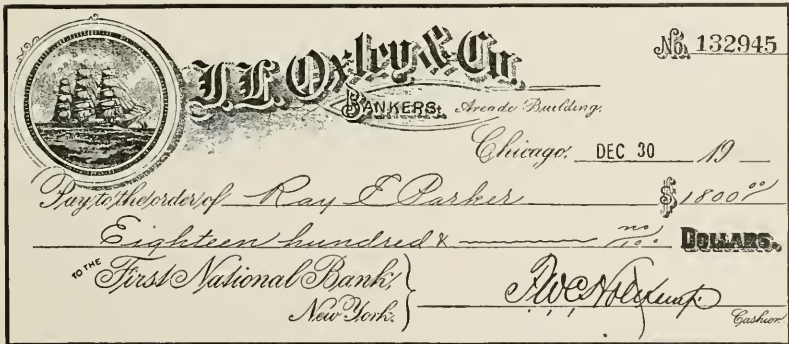 J. L. Oxley & Co.
No. 132945
BANKERS. Arcade Building.
Chicago. DEC 30 19
Pay to the order of Ray E Parker $1800 00
Eighteen hundred & no/100 DOLLARS.
TO THE First National Bank,
New York.
Cashier